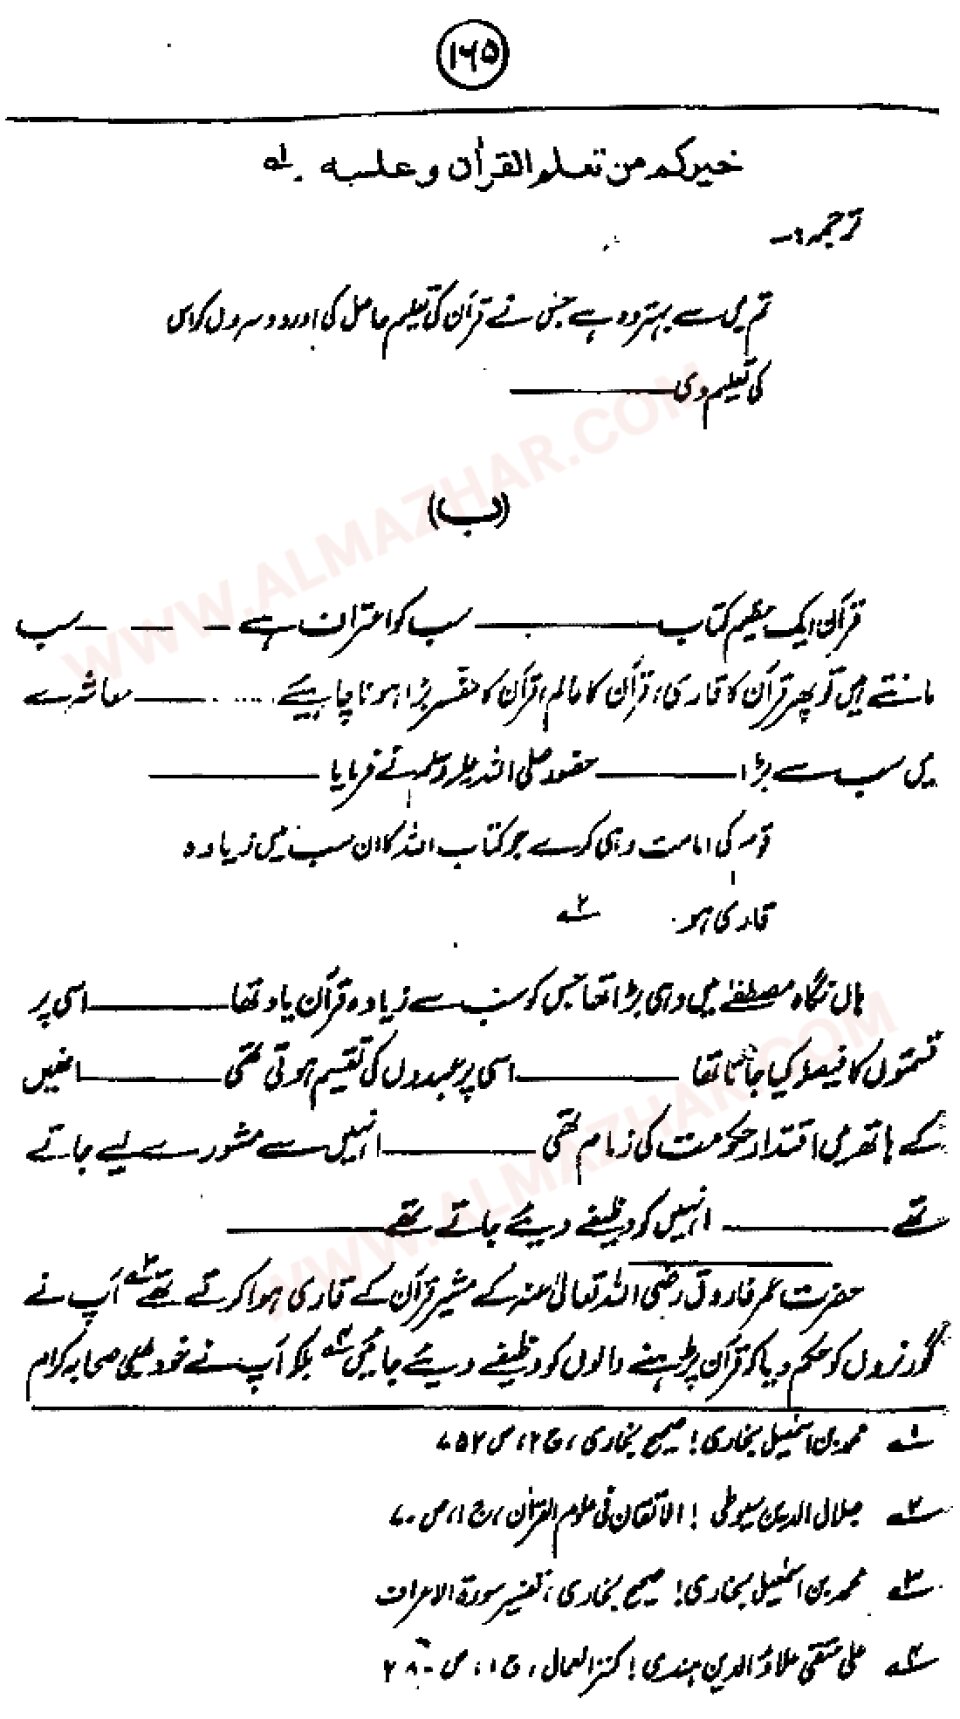 ۱۶۵
خیرکم من تعلم القرآن وعلمہ ۔ لے
ترجمہ :-
تم میں سے بہتر وہ ہے جس نے قرآن کی تعلیم حاصل کی اور دوسروں کو اس
کی تعلیم دی ————
(ب)
قرآن ایک عظیم کتاب ———— سب کو اعتراف ہے — — — سب
مانتے ہیں تو پھر قرآن کا قاری، قرآن کا عالم، قرآن کا مفسر بڑا ہونا چاہیئے ..... —— معاشرے
میں سب سے بڑا ———— حضور صلی اللہ علیہ وسلم نے فرمایا ————
قوم کی امامت وہی کرے جو کتاب اللہ کا ان سب میں زیادہ
قاری ہو۔ ۲ے
ہاں نگاہ مصطفےٰ میں وہی بڑا تھا جس کو سب سے زیادہ قرآن یاد تھا ———— اسی پر
قسمتوں کا فیصلہ کیا جاتا تھا ———— اسی پر عہدوں کی تقسیم ہوتی تھی ———— انھیں
کے ہاتھ میں اقتدار حکومت کی زمام تھی ———— انہیں سے مشورے لیے جاتے
تھے ———— انہیں کو وظیفے دیئے جاتے تھے ————
حضرت عمر فاروق رضی اللہ تعالیٰ عنہ کے مشیر قرآن کے قاری ہوا کرتے تھے ۳ے آپ نے
گورنروں کو حکم دیا کہ قرآن پڑھنے والوں کو وظیفے دیئے جائیں ۴ے بلکہ آپ نے خود بھی صحابہ کرام
۱ے محمد بن اسمٰعیل بخاری ! صحیح بخاری ، ج ۲، ص ۷۵۲
۲ے جلال الدین سیوطی ! الاتقان فی علوم القرآن ، ج ۱، ص ۷۰
۳ے محمد بن اسمٰعیل بخاری ! صحیح بخاری ، تفسیر سورۃ الاعراف
۴ے علی متقی علاؤ الدین ہندی ! کنز العمال ، ج ۱، ص ۲۸۰
WWW.ALMAZHAR.COM
WWW.ALMAZHAR.COM